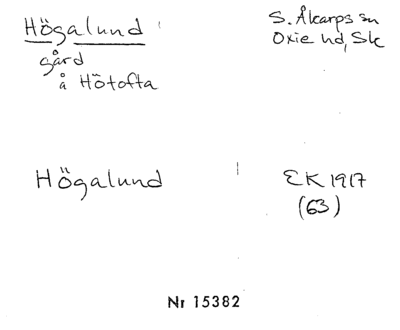 Högalund
gård
å Hötofta
S. Åkarps sn
Oxie hd, Sk
Högalund
EK 1917
(63)
Nr 15382